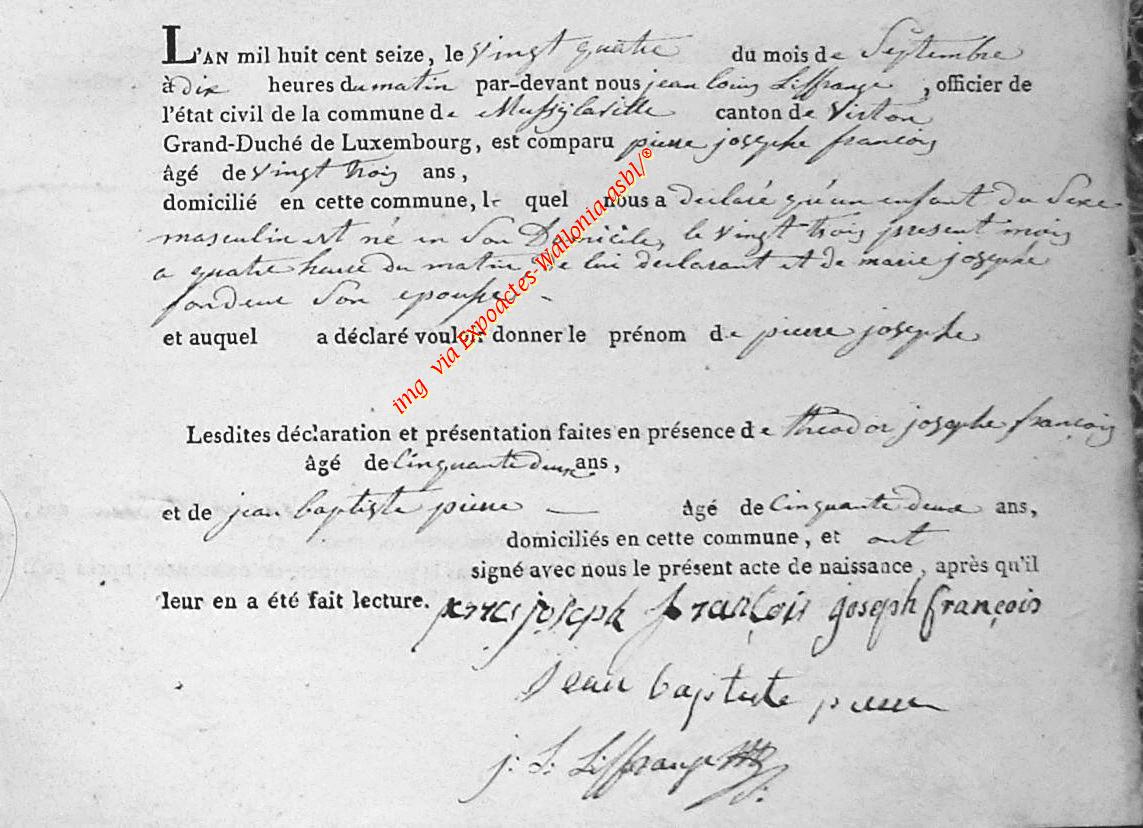 L'AN mil huit cent seize, le vingt quatre du mois de Septembre
à dix heures du matin par-devant nous jean louis Liffrange, officier de
l'état civil de la commune de Mussylaville canton de Virton
Grand-Duché de Luxembourg, est comparu pierre josephe françois
âgé de vingt trois ans,
domicilié en cette commune, le quel nous a declaré qu'un enfant du Sexe
masculin est né en Son Domicile, le vingt-trois present mois
a quatre heure du matin de lui declarant et de marie josephe
fondeur Son epouse -
et auquel a déclaré vouloir donner le prénom de pierre josephe
Lesdites déclaration et présentation faites en présence de theodor josephe françois
âgé de Cinquante deux ans,
et de jean baptiste pierre — âgé de Cinquante deux ans,
domiciliés en cette commune, et ont
signé avec nous le présent acte de naissance, après qu'il
leur en a été fait lecture. joseph françois joseph françois
Jean baptiste pierre
j. L. Liffrange
img via Expoactes-Wallonia-asbl/®